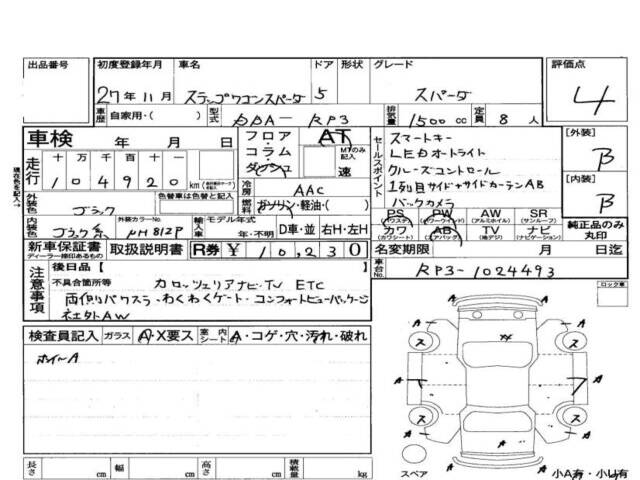 出品番号 初度登録年月 車名 ドア 形状 グレード 評価点
27年11月 ステップワゴンスパーダ 5 スパーダ 4
車歴 自家用・( ) 型式 DBA- RP3 排気量 1500cc 定員 8人
車検 年 月 日
フロア・コラム・ダッシュ AT MTのみ記入 速
セールスポイント
スマートキー
LEDオートライト
クルーズコントロール
1列目サイド+サイドカーテンAB
バックカメラ
[外装] B
[内装] B
走行 十 万 千 百 十 一
104920 km
現在色を記入→
冷房 AAC
外装色 ブラック 色替車は色替と記入
燃料 ガソリン・軽油・( )
内装色 ブラック系 外装カラーNo. NH812P 輸入車 モデル年式 年・不明 D車・並 右H・左H
PS (パワステ) PW (パワーウインド) AW (アルミホイル) SR (サンルーフ)
カワ (カワシート) AB (エアバック) TV (地デジ) ナビ (ナビゲーション)
純正品のみ丸印
新車保証書 ディーラー捺印あるもの 取扱説明書 R券 ¥ 10,230
名変期限 月 日迄
注意事項 後日品 [ ]
不具合箇所等 カロッツェリアナビ・TV ETC
両側パワスラ・わくわくゲート・コンフォートビューパッケージ
社外AW
車台No. RP3-1024493
ロック車
検査員記入 ガラス A・X要ス 室内シート A・コゲ・穴・汚れ・破れ
ホイールA
ス A ス A A A ス ス A
長さ cm 幅 cm 高さ cm 積載量 kg
スペア 小A有・小U有